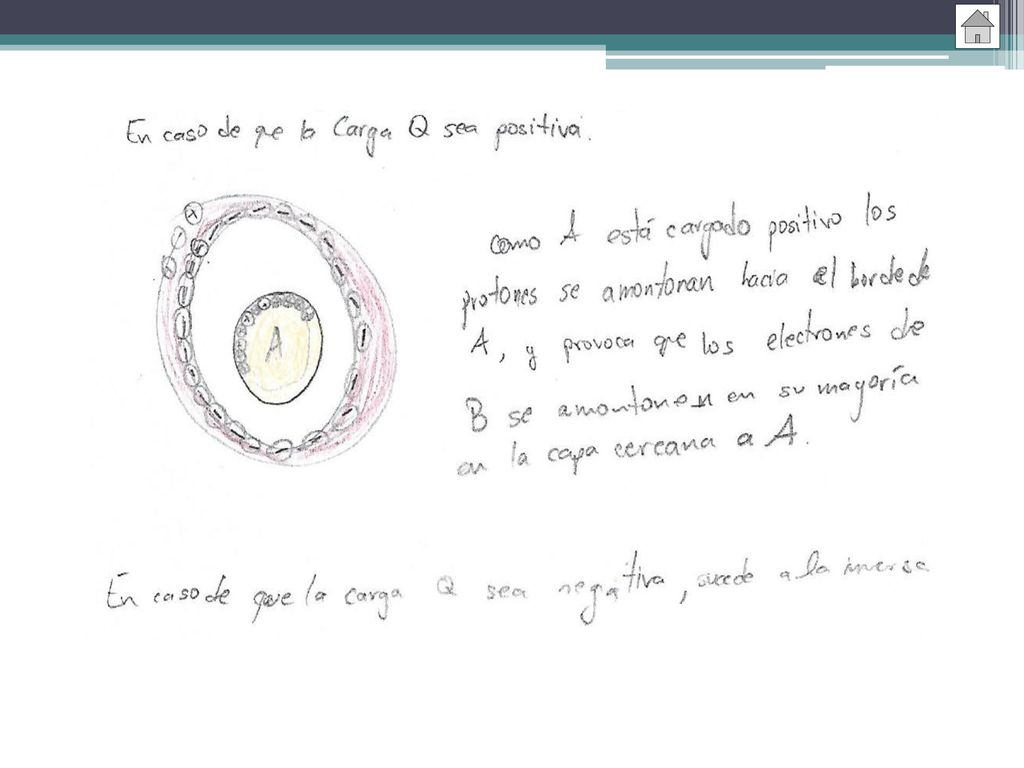 En caso de que la Carga Q sea positiva.
como A está cargado positivo los
protones se amontonan hacia el borde de
A, y provoca que los electrones de
B se amontonen en su mayoría
en la capa cercana a A.
A
En caso de que la carga Q sea negativa, sucede a la inversa